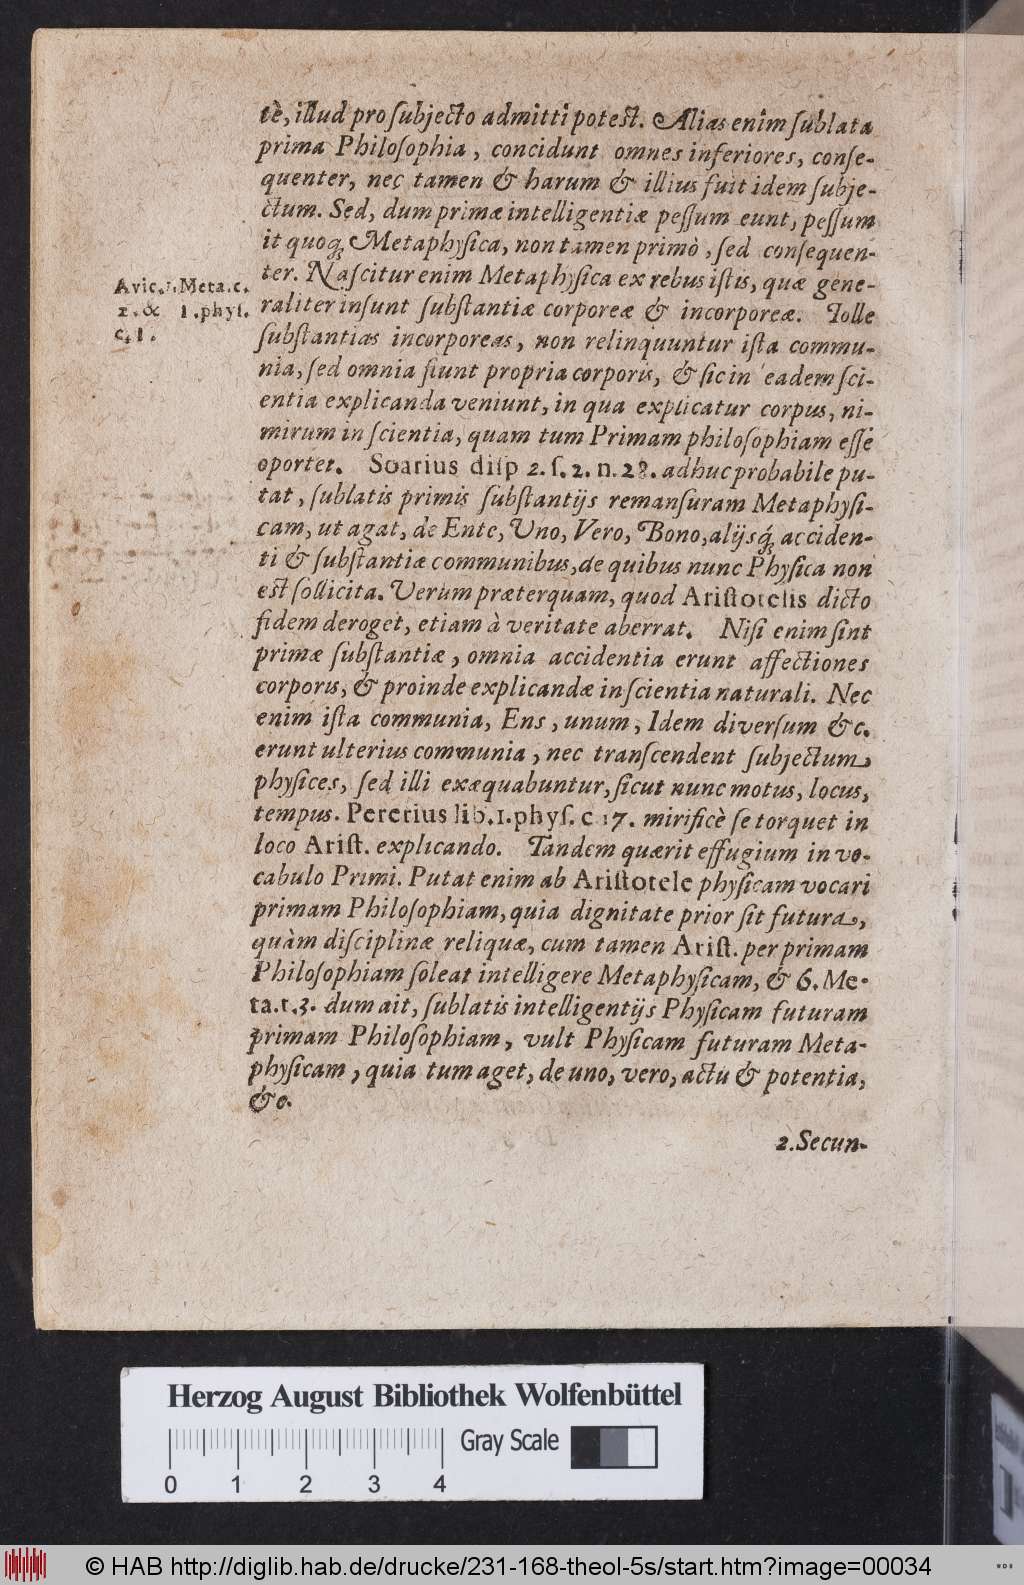 tè, illud pro ſubjecto admitti poteſt. Alias enim ſublata
prima Philoſophia, concidunt omnes inferiores, conſe-
quenter, nec tamen & harum & illius fuit idem ſubje-
ctum. Sed, dum primæ intelligentiæ peſſum eunt, peſſum
it quoq; Metaphyſica, non tamen primò, ſed conſequen-
ter. Naſcitur enim Metaphyſica ex rebus iſtis, quæ gene-
raliter inſunt ſubſtantiæ corporeæ & incorporeæ. Tolle
ſubſtantias incorporeas, non relinquuntur iſta commu-
nia, ſed omnia fiunt propria corporis, & ſic in eadem ſci-
entia explicanda veniunt, in qua explicatur corpus, ni-
mirum in ſcientia, quam tum Primam philoſophiam eſſe
oportet. Soarius diſp 2. ſ. 2. n. 28. adhuc probabile pu-
tat, ſublatis primis ſubſtantijs remanſuram Metaphyſi-
cam, ut agat, de Ente, Uno, Vero, Bono, alijsq́; acciden-
ti & ſubſtantiæ communibus, de quibus nunc Phyſica non
eſt ſollicita. Verum præterquam, quod Ariſtotelis dicto
fidem deroget, etiam à veritate aberrat. Niſi enim ſint
primæ ſubſtantiæ, omnia accidentia erunt affectiones
corporis, & proinde explicandæ in ſcientia naturali. Nec
enim iſta communia, Ens, unum, Idem diverſum &c.
erunt ulterius communia, nec tranſcendent ſubjectum
phyſices, ſed illi exæquabuntur, ſicut nunc motus, locus,
tempus. Pererius lib. 1. phyſ. c 17. mirificè ſe torquet in
loco Ariſt. explicando. Tandem quærit effugium in vo-
cabulo Primi. Putat enim ab Ariſtotele phyſicam vocari
primam Philoſophiam, quia dignitate prior ſit futura,
quàm diſciplinæ reliquæ, cum tamen Ariſt. per primam
Philoſophiam ſoleat intelligere Metaphyſicam, & 6. Me-
ta. t. 3. dum ait, ſublatis intelligentijs Phyſicam futuram
primam Philoſophiam, vult Phyſicam futuram Meta-
phyſicam, quia tum aget, de uno, vero, actu & potentia,
&c.
2. Secun-
Avic. 1. Meta. c.
2. & 1. phyſ.
c. 1.
Herzog August Bibliothek Wolfenbüttel
Gray Scale
0 1 2 3 4
© HAB http://diglib.hab.de/drucke/231-168-theol-5s/start.htm?image=00034